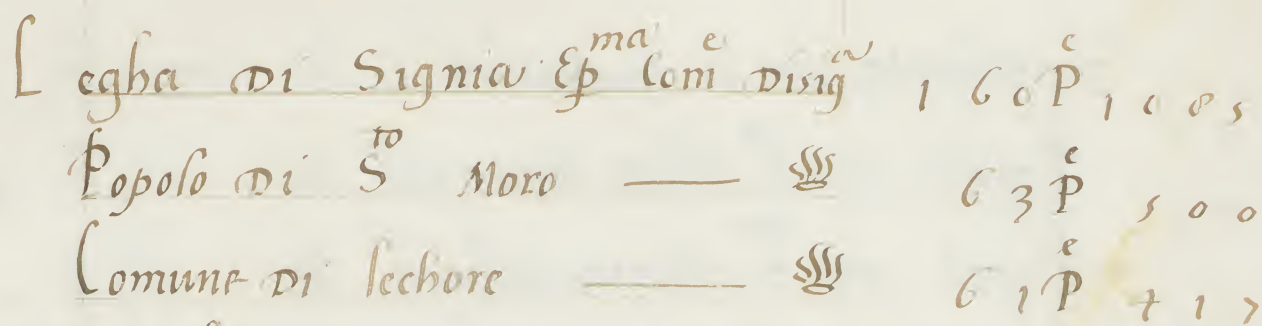 Legha di Signia Epma Come disiga 160 Pe 1085
Popolo di Sto Moro — 63 Pe 500
Comune di lechore — 61 Pe 417